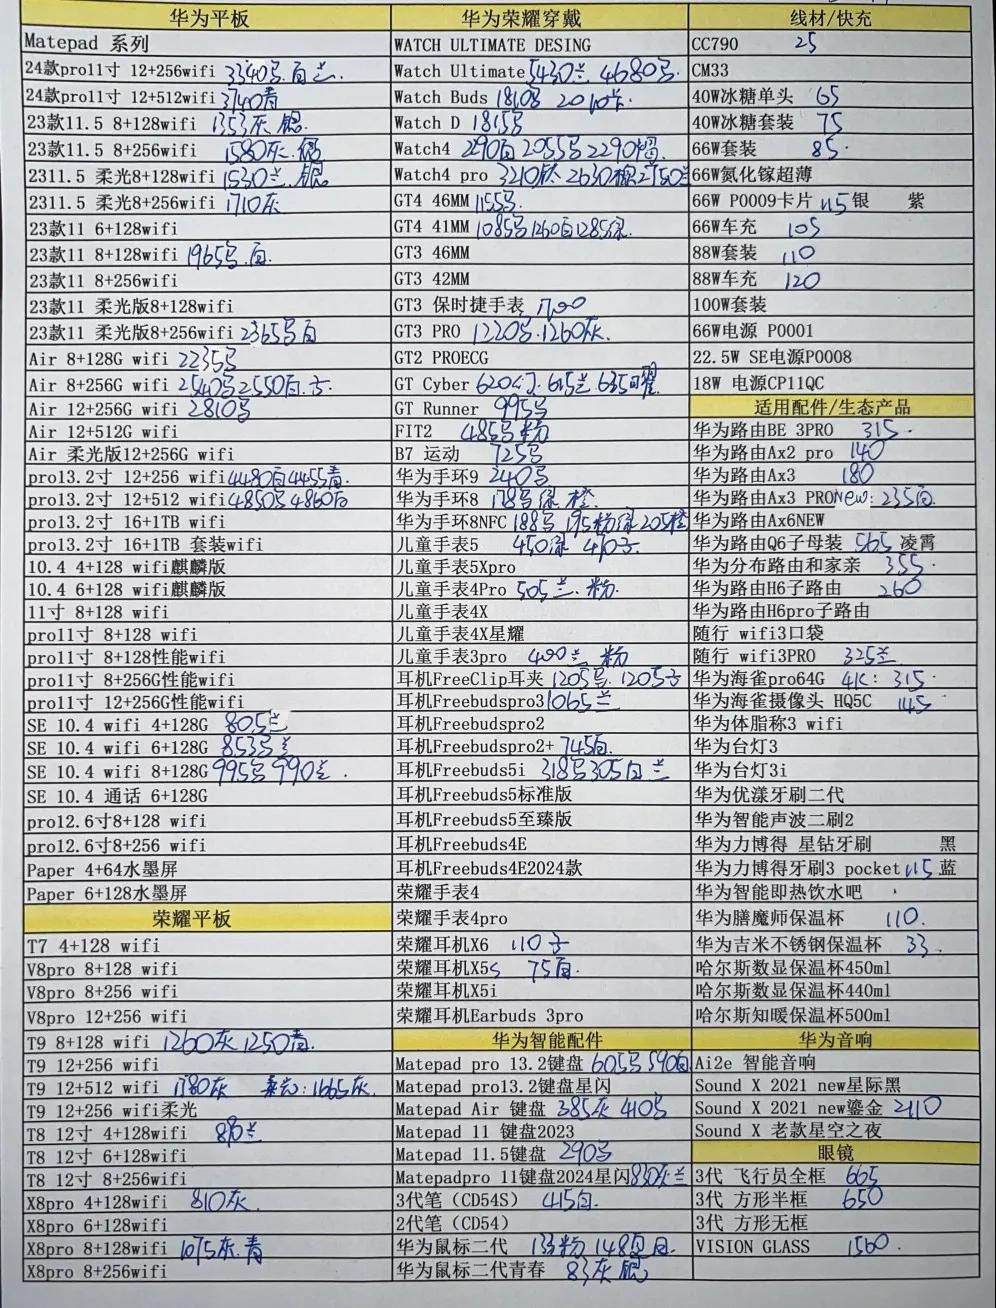 华为平板
Matepad 系列
24款pro11寸 12+256wifi 3340 白 兰.
24款pro11寸 12+512wifi 3740青
23款11.5 8+128wifi 1353灰 银
23款11.5 8+256wifi 1580灰.银
2311.5 柔光8+128wifi 1530兰.银
2311.5 柔光8+256wifi 1710灰
23款11 6+128wifi
23款11 8+128wifi 1965 .白.
23款11 8+256wifi
23款11 柔光版8+128wifi
23款11 柔光版8+256wifi 2365 白
Air 8+128G wifi 2235
Air 8+256G wifi 2540 2550白.
Air 12+256G wifi 2810
Air 12+512G wifi
Air 柔光版12+256G wifi
pro13.2寸 12+256 wifi 4480白4455青
pro13.2寸 12+512 wifi 4850 4860白
pro13.2寸 16+1TB wifi
pro13.2寸 16+1TB 套装wifi
10.4 4+128 wifi麒麟版
10.4 6+128 wifi麒麟版
11寸 8+128 wifi
pro11寸 8+128 wifi
pro11寸 8+128性能wifi
pro11寸 8+256G性能wifi
pro11寸 12+256G性能wifi
SE 10.4 wifi 4+128G 805兰
SE 10.4 wifi 6+128G 853 兰
SE 10.4 wifi 8+128G 995 990兰.
SE 10.4 通话 6+128G
pro12.6寸8+128 wifi
pro12.6寸8+256 wifi
Paper 4+64水墨屏
Paper 6+128水墨屏
荣耀平板
T7 4+128 wifi
V8pro 8+128 wifi
V8pro 8+256 wifi
V8pro 12+256 wifi
T9 8+128 wifi 1260灰 1250青.
T9 12+256 wifi
T9 12+512 wifi 1780灰 柔光:1665灰.
T9 12+256 wifi柔光
T8 12寸 4+128wifi 兰
T8 12寸 6+128wifi
T8 12寸 8+256wifi
X8pro 4+128wifi 810灰.
X8pro 6+128wifi
X8pro 8+128wifi 1075灰.青
X8pro 8+256wifi
华为荣耀穿戴
WATCH ULTIMATE DESING
Watch Ultimate 5430兰 4680
Watch Buds 1810 2010
Watch D 1815
Watch4 2055
Watch4 pro 3210 2630 2750兰
GT4 46MM 1155
GT4 41MM 1085 1260白1285绿.
GT3 46MM
GT3 42MM
GT3 保时捷手表
GT3 PRO 1220 .1260灰.
GT2 PROECG
GT Cyber 620幻.615兰 635曜
GT Runner 995
FIT2 485 粉
B7 运动 725
华为手环9 240
华为手环8 178 绿 橙
华为手环8NFC 188 195粉绿205橙
儿童手表5 450绿
儿童手表5Xpro
儿童手表4Pro 505兰.粉.
儿童手表4X
儿童手表4X星耀
儿童手表3pro 400兰 粉
耳机FreeClip耳夹 1205 . 1205
耳机Freebudspro3 1065兰
耳机Freebudspro2
耳机Freebudspro2+ 745白.
耳机Freebuds5i 318 305白 兰
耳机Freebuds5标准版
耳机Freebuds5至臻版
耳机Freebuds4E
耳机Freebuds4E2024款
荣耀手表4
荣耀手表4pro
荣耀耳机X6 110
荣耀耳机X5s 75白.
荣耀耳机X5i
荣耀耳机Earbuds 3pro
华为智能配件
Matepad pro 13.2键盘 605 590白
Matepad pro13.2键盘星闪
Matepad Air 键盘 385灰 410
Matepad 11 键盘2023
Matepad 11.5键盘 290
Matepadpro 11键盘2024星闪830灰兰
3代笔（CD54S） 415白.
2代笔（CD54）
华为鼠标二代 133粉 148
华为鼠标二代青春 83灰 银
线材/快充
CC790 25
CM33
40W冰糖单头 65
40W冰糖套装 75
66W套装 85.
66W氮化镓超薄
66W P0009卡片 115银 紫
66W车充 105
88W套装 110
88W车充 120
100W套装
66W电源 P0001
22.5W SE电源P0008
18W 电源CP11QC
适用配件/生态产品
华为路由BE 3PRO 315.
华为路由Ax2 pro 140
华为路由Ax3 180
华为路由Ax3 PRONew: 235白
华为路由Ax6NEW
华为路由Q6子母装 565 凌霄
华为分布路由和家亲 355.
华为路由H6子路由 260
华为路由H6pro子路由
随行 wifi3口袋
随行 wifi3PRO 325兰
华为海雀pro64G 4K: 315.
华为海雀摄像头 HQ5C 145
华为体脂称3 wifi
华为台灯3
华为台灯3i
华为优漾牙刷二代
华为智能声波二刷2
华为力博得 星钻牙刷 黑
华为力博得牙刷3 pocket 115 蓝
华为智能即热饮水吧
华为膳魔师保温杯 110.
华为吉米不锈钢保温杯 33.
哈尔斯数显保温杯450ml
哈尔斯数显保温杯440ml
哈尔斯知暖保温杯500ml
华为音响
Ai2e 智能音响
Sound X 2021 new星际黑
Sound X 2021 new鎏金 2110
Sound X 老款星空之夜
眼镜
3代 飞行员全框 665
3代 方形半框 650
3代 方形无框
VISION GLASS 1560.